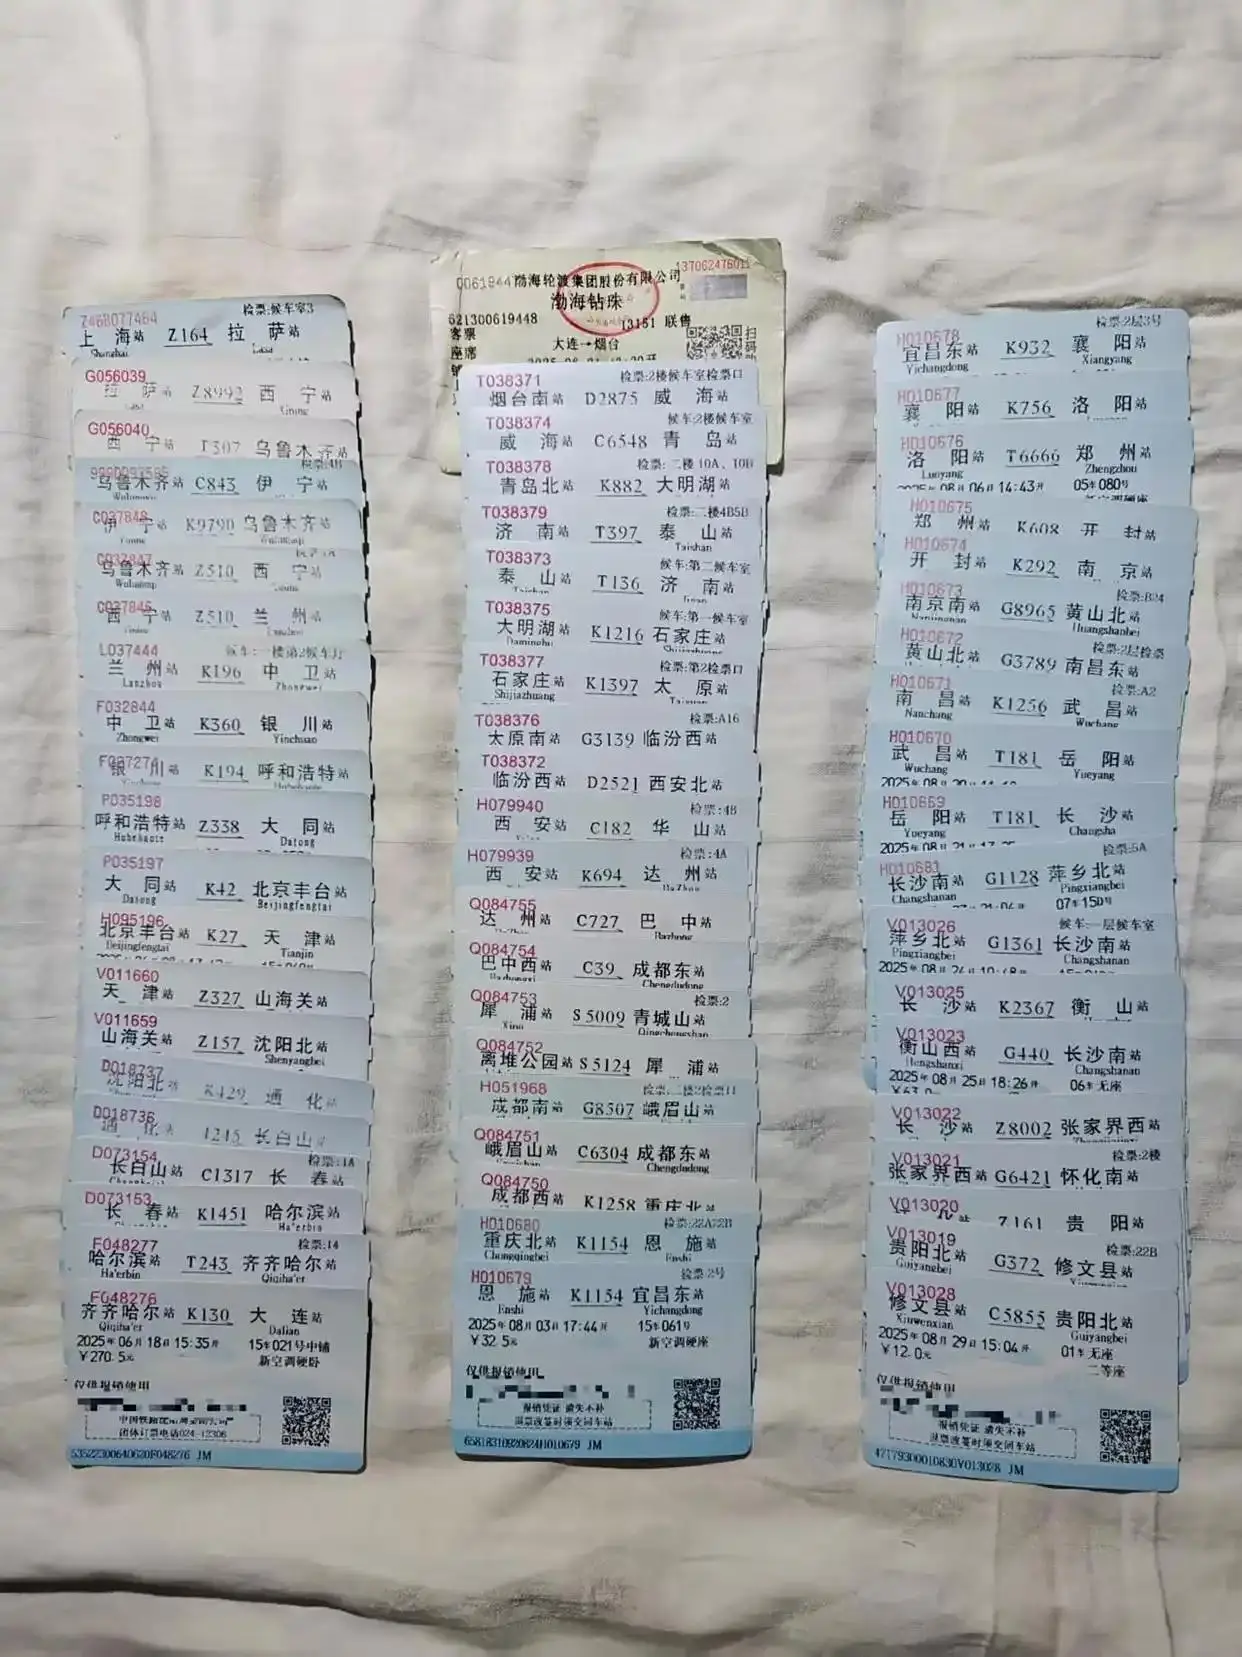 Z46B077464 检票:候车室3
上海站 Z164 拉萨站
Shanghai Lasa
G056039
拉萨站 Z8992 西宁站
Xining
G056040
西宁站 T307 乌鲁木齐站
乌鲁木齐站 C843 伊宁站
C037848
伊宁站 K9790 乌鲁木齐站
C037847
乌鲁木齐站 Z510 西宁站
C037846
西宁站 Z510 兰州站
L037444
兰州站 K196 中卫站
Lanzhou Zhongwei
F032844
中卫站 K360 银川站
Zhongwei Yinchuan
银川站 K194 呼和浩特站
P035198
呼和浩特站 Z338 大同站
Huhehaote Datong
P035197
大同站 K42 北京丰台站
Datong Beijingfengtai
H095196
北京丰台站 K27 天津站
Beijingfengtai Tianjin
V011660
天津站 Z327 山海关站
V011659
山海关站 Z157 沈阳北站
Shenyangbei
D018737
沈阳北站 K429 通化站
D018736
通化 长白山
D073154 检票:1A
长白山站 C1317 长春站
D073153
长春站 K1451 哈尔滨站
Ha'erbin
F048277 检票:14
哈尔滨站 T243 齐齐哈尔站
Ha'erbin Qiqiha'er
F048276
齐齐哈尔站 K130 大连站
Qiqiha'er Dalian
2025年06月18日15:35开 15车021号中铺
￥270.5元 新空调硬卧
仅供报销使用
团体订票电话024-12306
JM
渤海轮渡集团股份有限公司
渤海钻珠
621300619448 13151 联售
客票
座席 大连→烟台
T038371 检票:2楼候车室检票口
烟台南站 D2875 威海站
T038374 候车:2楼候车室
威海站 C6548 青岛站
T038378 检票:二楼10A、10B
青岛北站 K882 大明湖站
T038379 检票:二楼4B5B
济南站 T397 泰山站
Taishan
T038373 候车:第二候车室
泰山站 T136 济南站
T038375 候车:第一候车室
大明湖站 K1216 石家庄站
T038377 检票:第2检票口
石家庄站 K1397 太原站
Shijiazhuang
T038376 检票:A16
太原南站 G3139 临汾西站
T038372
临汾西站 D2521 西安北站
H079940 检票:4B
西安站 C182 华山站
H079939 检票:4A
西安站 K694 达州站
Q084755
达州站 C727 巴中站
Q084754
巴中西站 C39 成都东站
Chengdudong
Q084753 检票:2
犀浦站 S5009 青城山站
Q084752
离堆公园站 S5124 犀浦站
H051968 检票:二楼2检票口
成都南站 G8507 峨眉山站
Q084751
峨眉山站 C6304 成都东站
Chengdudong
Q084750
成都西站 K1258 重庆北站
H010680 检票:22A22B
重庆北站 K1154 恩施站
Chongqingbei Enshi
H010679 检票:2号
恩施站 K1154 宜昌东站
Enshi Yichangdong
2025年08月03日17:44开 15车061号
￥32.5元 新空调硬座
仅供报销使用
报销凭证 遗失不补
退票改签时须交回车站
JM
H010678 检票:2层3号
宜昌东站 K932 襄阳站
Yichangdong Xiangyang
H010677
襄阳站 K756 洛阳站
H010676
洛阳站 T6666 郑州站
Luoyang Zhengzhou
2025年08月06日14:43开 05车080号
H010675
郑州站 K608 开封站
H010674
开封站 K292 南京站
H010673 检票:B24
南京南站 G8965 黄山北站
Huangshanbei
H010672 检票:2层检票
黄山北站 G3789 南昌东站
H010671 检票:A2
南昌站 K1256 武昌站
Nanchang Wuchang
H010670
武昌站 T181 岳阳站
Wuchang Yueyang
H010669
岳阳站 T181 长沙站
Yueyang Changsha
H010681 检票:5A
长沙南站 G1128 萍乡北站
Changshanan Pingxiangbei
07车15D号
V013026 候车:一层候车室
萍乡北站 G1361 长沙南站
Pingxiangbei Changshanan
V013025
长沙站 K2367 衡山站
V013023
衡山西站 G440 长沙南站
Hengshanxi Changshanan
2025年08月25日18:26开 06车无座
V013022
长沙站 Z8002 张家界西站
V013021 检票:2楼
张家界西站 G6421 怀化南站
V013020
Z161 贵阳站
V013019 检票:22B
贵阳北站 G372 修文县站
Guiyangbei
V013028
修文县站 C5855 贵阳北站
Xiuwenxian Guiyangbei
2025年08月29日15:04开 01车无座
￥12.0元 二等座
仅供报销使用
报销凭证 遗失不补
退票改签时须交回车站
JM